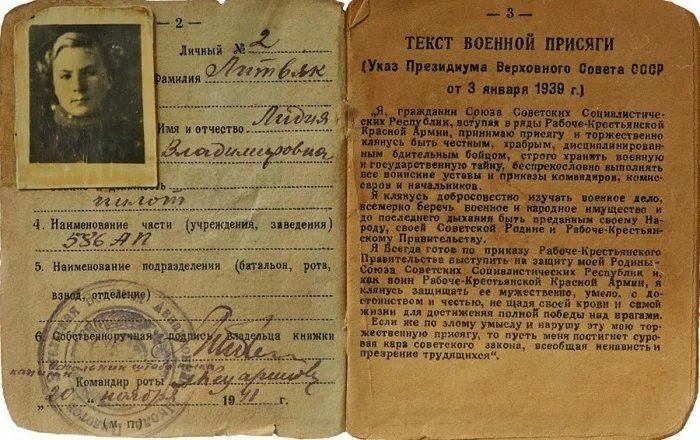 — 2 —
Личный № 2
Фамилия Литвяк
Имя и отчество Лидия
Владимировна
пилот
4. Наименование части (учреждения, заведения)
586 АП
5. Наименование подразделения (батальон, рота,
взвод, отделение)
6. Собственноручная подпись владельца книжки
капитан
Командир роты
„20“ ноября 1941 г.
(м. п.)
— 3 —
ТЕКСТ ВОЕННОЙ ПРИСЯГИ
(Указ Президиума Верховного Совета СССР
от 3 января 1939 г.)
„Я, гражданин Союза Советских Социалистиче-
ских Республик, вступая в ряды Рабоче-Крестьянской
Красной Армии, принимаю присягу и торжественно
клянусь быть честным, храбрым, дисциплинирован-
ным бдительным бойцом, строго хранить военную
и государственную тайну, беспрекословно выполнять
все воинские уставы и приказы командиров, комис-
саров и начальников.
Я клянусь добросовестно изучать военное дело,
всемерно беречь военное и народное имущество и
до последнего дыхания быть преданным своему На-
роду, своей Советской Родине и Рабоче-Крестьян-
скому Правительству.
Я Всегда готов по приказу Рабоче-Крестьянского
Правительства выступить на защиту моей Родины-
Союза Советских Социалистических Республик и,
как воин Рабоче-Крестьянской Красной Армии, я
клянусь защищать ее мужественно, умело, с до-
стоинством и честью, не щадя своей крови и самой
жизни для достижения полной победы над врагами.
Если же по злому умыслу я нарушу эту мою тор-
жественную присягу, то пусть меня постигнет суро-
вая кара советского закона, всеобщая ненависть и
презрение трудящихся“.